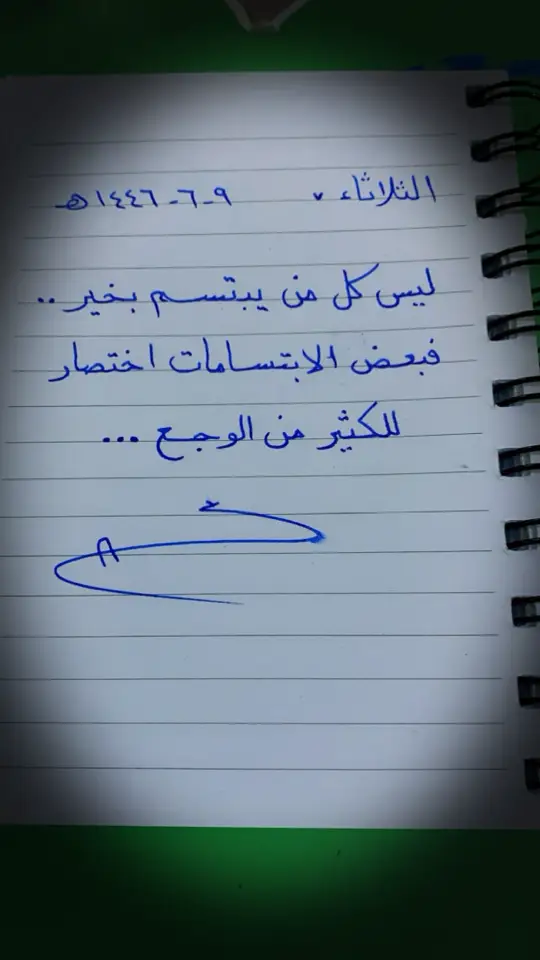 الثلاثاء ٩-٦-١٤٤٦هـ
ليس كل من يبتسم بخير ..
فبعض الابتسامات اختصار
للكثير من الوجع ...